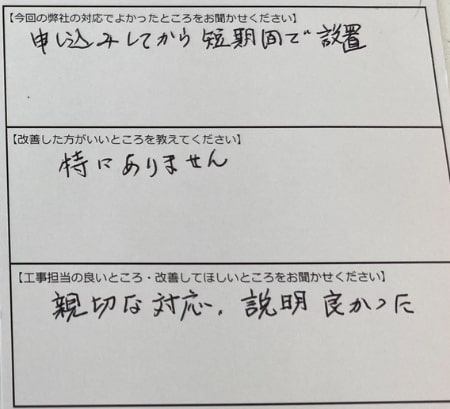 【今回の弊社の対応でよかったところをお聞かせください】
申し込みしてから短期間で設置
【改善した方がいいところを教えてください】
特にありません
【工事担当の良いところ・改善してほしいところをお聞かせください】
親切な対応、説明良かった